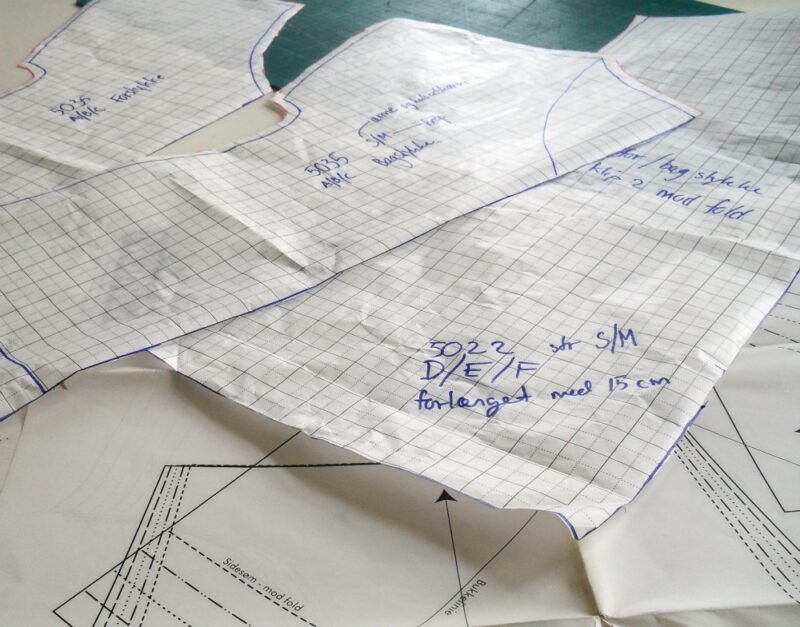 5035
A/B/C Forstykke
S/M
5035
A/B/C Bagstykke
for / bag stykke
klip 2 mod fold
5022 str S/M
D/E/F
forlænget med 15 cm
Sidesøm - mod fold
Bukkelinie